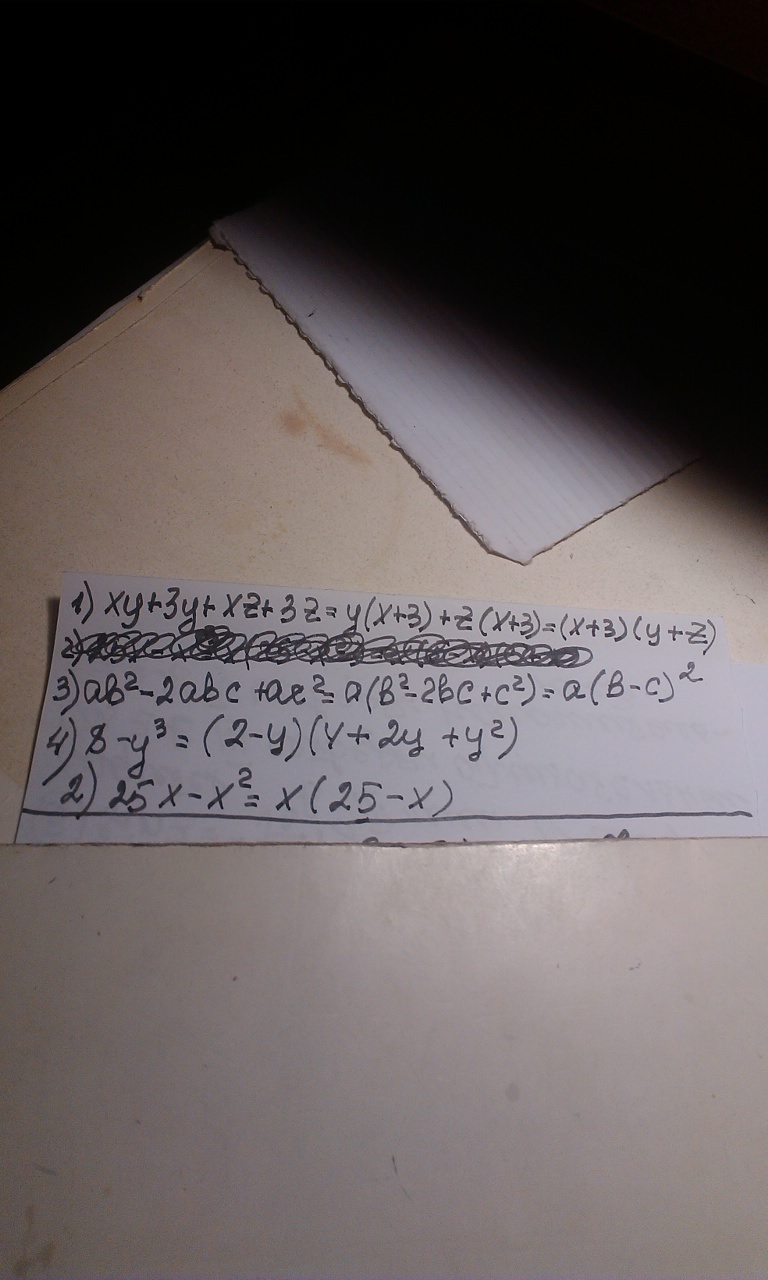 1) xy+3y+xz+3z=y(x+3)+z(x+3)=(x+3)(y+z)
2)
3) ab²-2abc+ac²=a(b²-2bc+c²)=a(b-c)²
4) 8-y³=(2-y)(4+2y+y²)
2) 25x-x²=x(25-x)